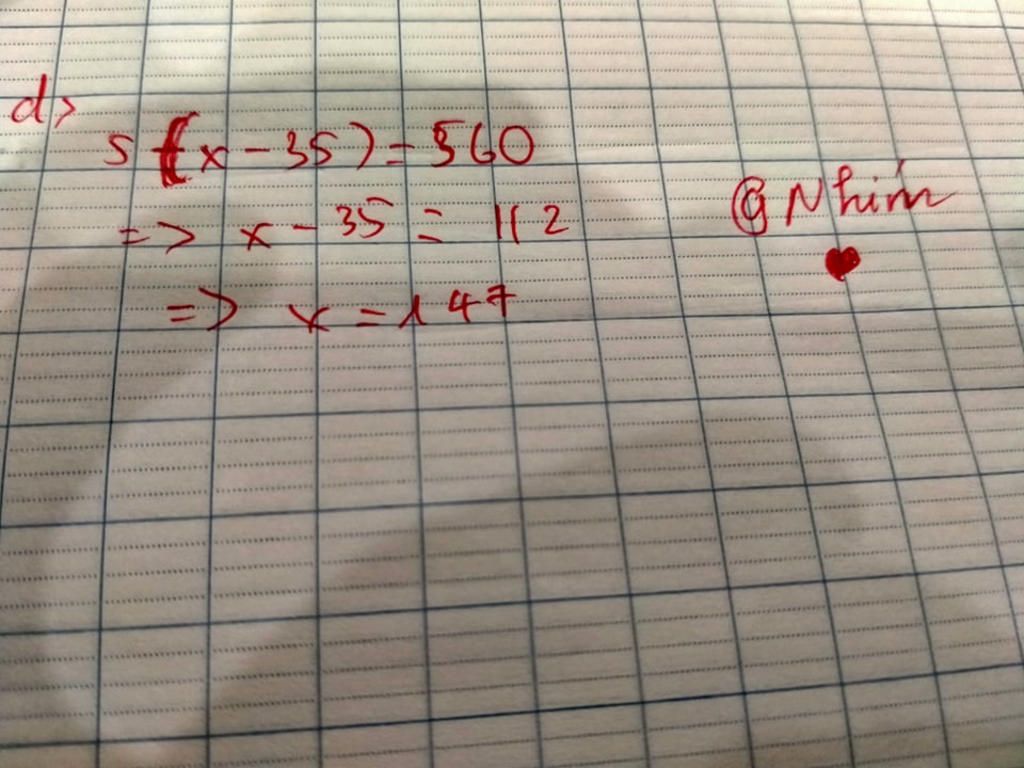 d>
5(x-35)=560
=> x-35=112
=> x=147
@Nhím